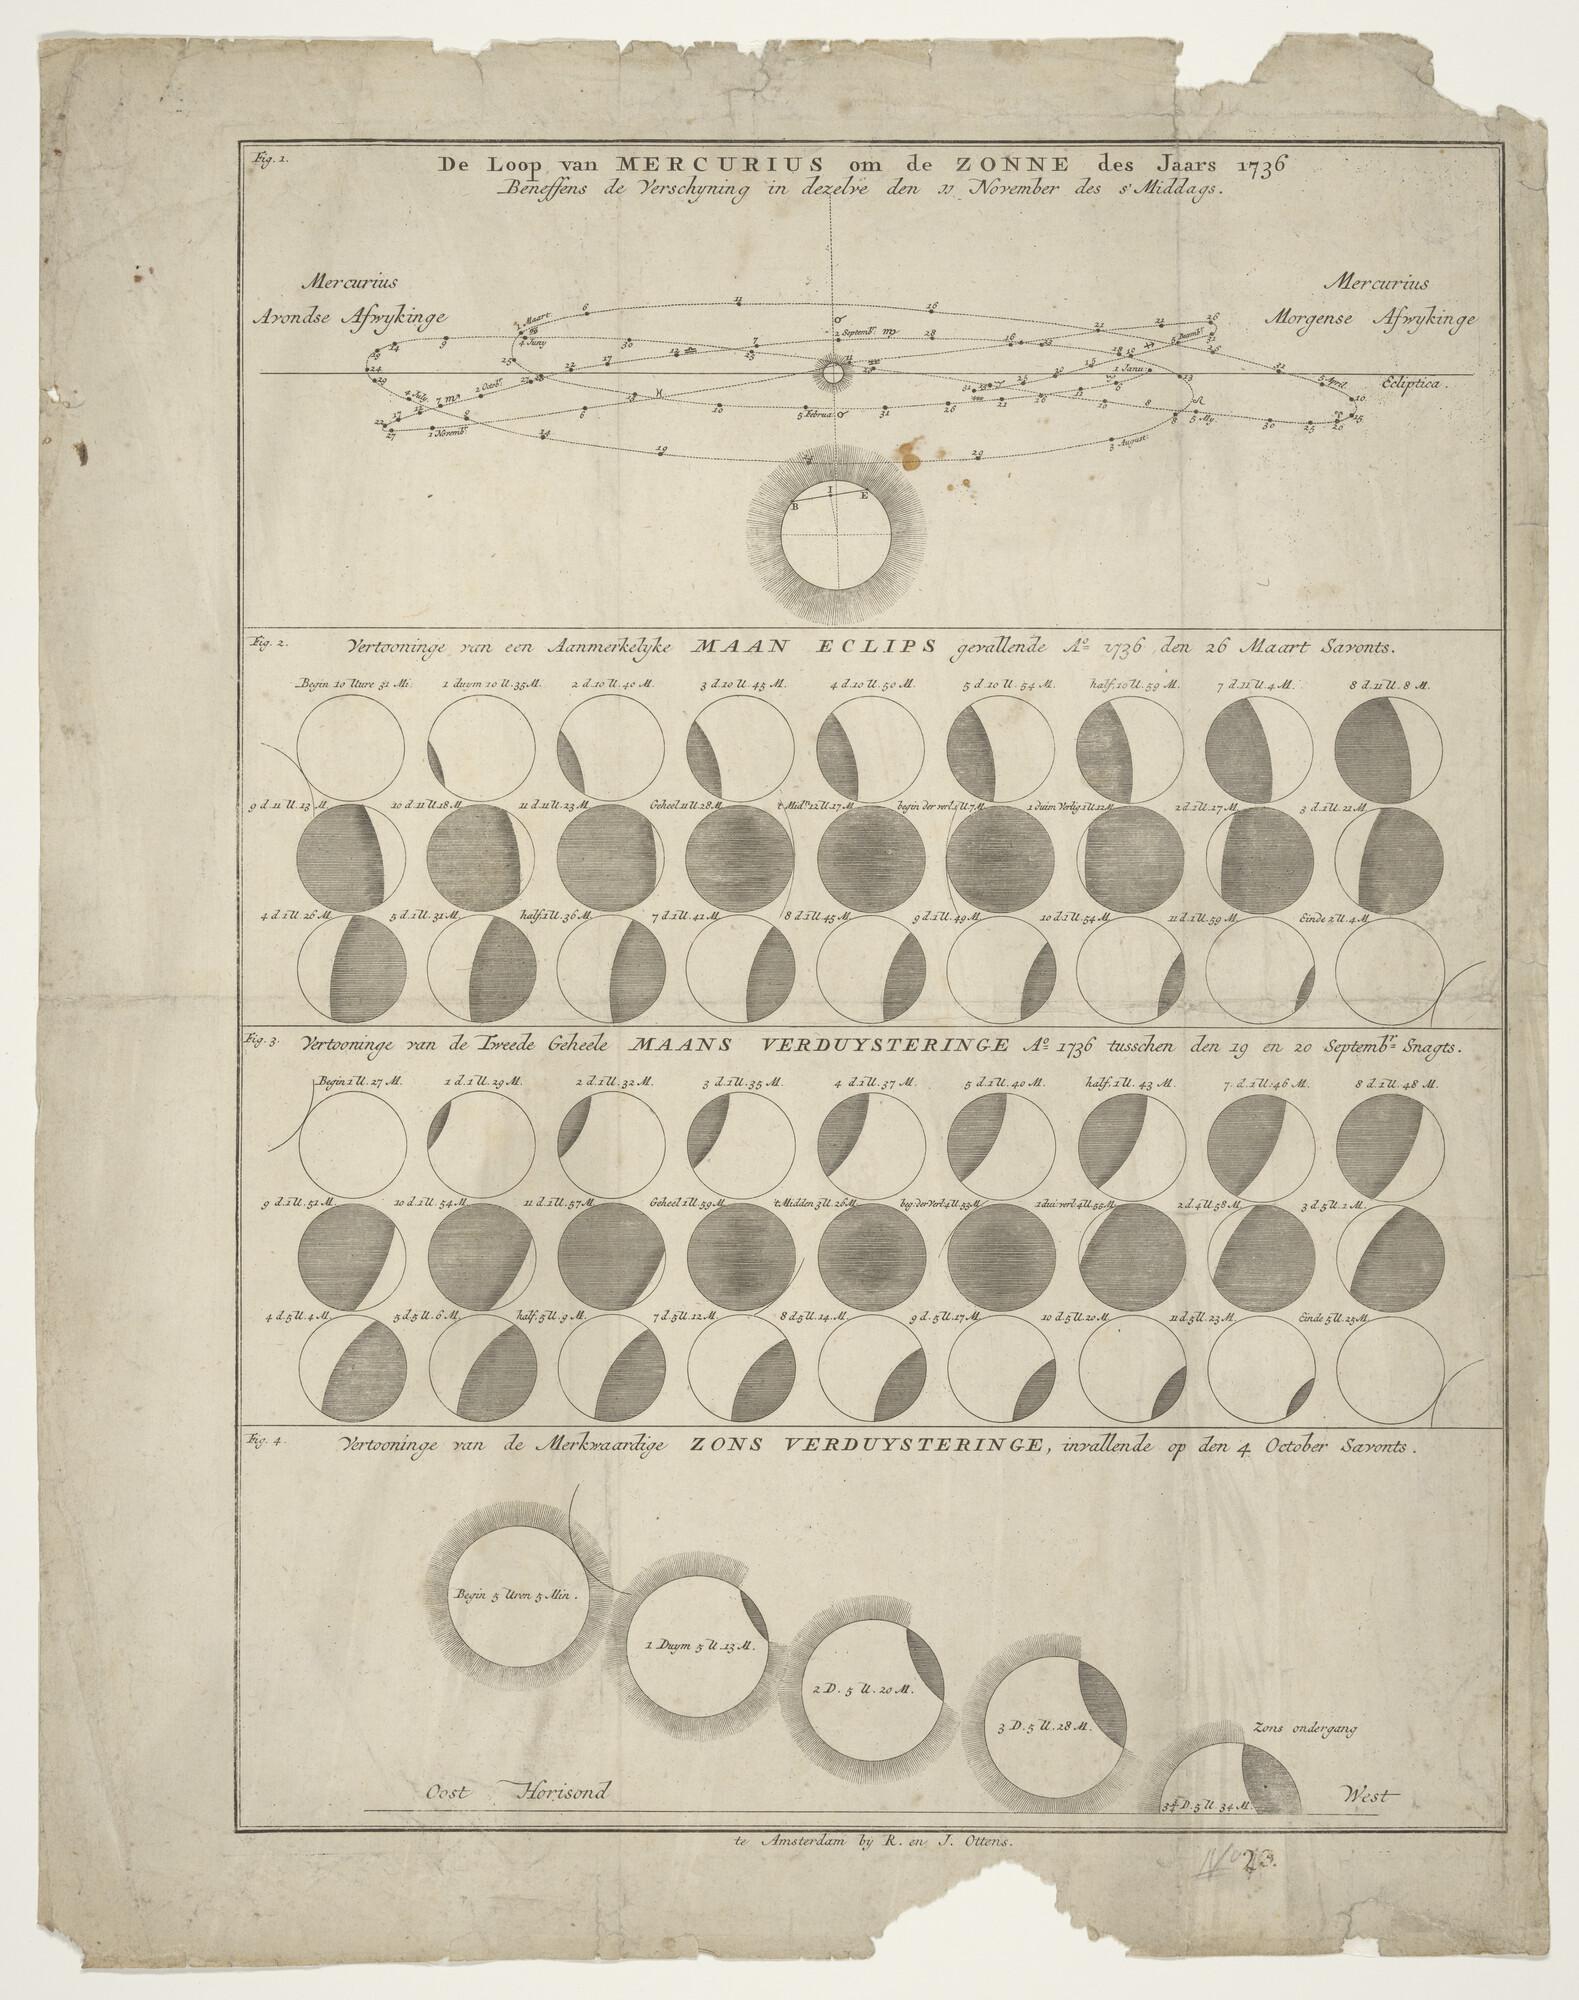 Fig. 1.
De Loop van MERCURIUS om de ZONNE des Jaars 1736
Beneffens de Verschyning in dezelve den 11 November des s'Middags.
Mercurius
Avondse Afwykinge
Mercurius
Morgense Afwykinge
1 Maart 6 11 16 21 21 26
4 Juny
2 Septembr.
Decembr.
2 Octobr.
1 Janu.
5 April
Ecliptica.
1 Novemb.
5 Februa.
5 My.
3 August.
B I E
Fig. 2. Vertooninge van een Aanmerkelyke MAAN ECLIPS gevallende Ao 1736 den 26 Maart Savonts.
Begin 10 Uure 31 Mi. 1 duym 10 U. 35 M. 2 d. 10 U. 40 M. 3 d. 10 U. 45 M. 4 d. 10 U. 50 M. 5 d. 10 U. 54 M. half. 10 U. 59 M. 7 d. 11 U. 4 M. 8 d. 11 U. 8 M.
9 d. 11 U. 13 M. 10 d. 11 U. 18 M. 11 d. 11 U. 23 M. Geheel 11 U. 28 M. 't Midd. 12 U. 17 M. begin der verl. 1 U. 7 M. 1 duim Verlig. 1 U. 12 M. 2 d. 1 U. 17 M. 3 d. 1 U. 21 M.
4 d. 1 U. 26 M. 5 d. 1 U. 31 M. half. 1 U. 36 M. 7 d. 1 U. 41 M. 8 d. 1 U. 45 M. 9 d. 1 U. 49 M. 10 d. 1 U. 54 M. 11 d. 1 U. 59 M. Einde 2 U. 4 M.
Fig. 3. Vertooninge van de Tweede Geheele MAANS VERDUYSTERINGE Ao 1736 tusschen den 19 en 20 Septembr. Snagts.
Begin 1 U. 27 M. 1 d. 1 U. 29 M. 2 d. 1 U. 32 M. 3 d. 1 U. 35 M. 4 d. 1 U. 37 M. 5 d. 1 U. 40 M. half. 1 U. 43 M. 7. d. 1 U. 46 M. 8 d. 1 U. 48 M.
9 d. 1 U. 51 M. 10 d. 1 U. 54 M. 11 d. 1 U. 57 M. Geheel 1 U. 59 M. 't Midden 3 U. 26 M. beg. der Verl. 4 U. 53 M. 1 dui. verl. 4 U. 55 M. 2 d. 4 U. 58 M. 3 d. 5 U. 1 M.
4 d. 5 U. 4 M. 5 d. 5 U. 6 M. half. 5 U. 9 M. 7 d. 5 U. 12 M. 8 d. 5 U. 14 M. 9 d. 5 U. 17 M. 10 d. 5 U. 20 M. 11 d. 5 U. 23 M. Einde 5 U. 25 M.
Fig. 4. Vertooninge van de Merkwaardige ZONS VERDUYSTERINGE, invallende op den 4 October Savonts.
Begin 5 Uren 5 Min.
1 Duym 5 U. 13 M.
2 D. 5 U. 20 M.
3 D. 5 U. 28 M.
Zons ondergang
Oost Horisond West
3¾ D. 5 U. 34 M.
te Amsterdam by R. en J. Ottens.
No 23.